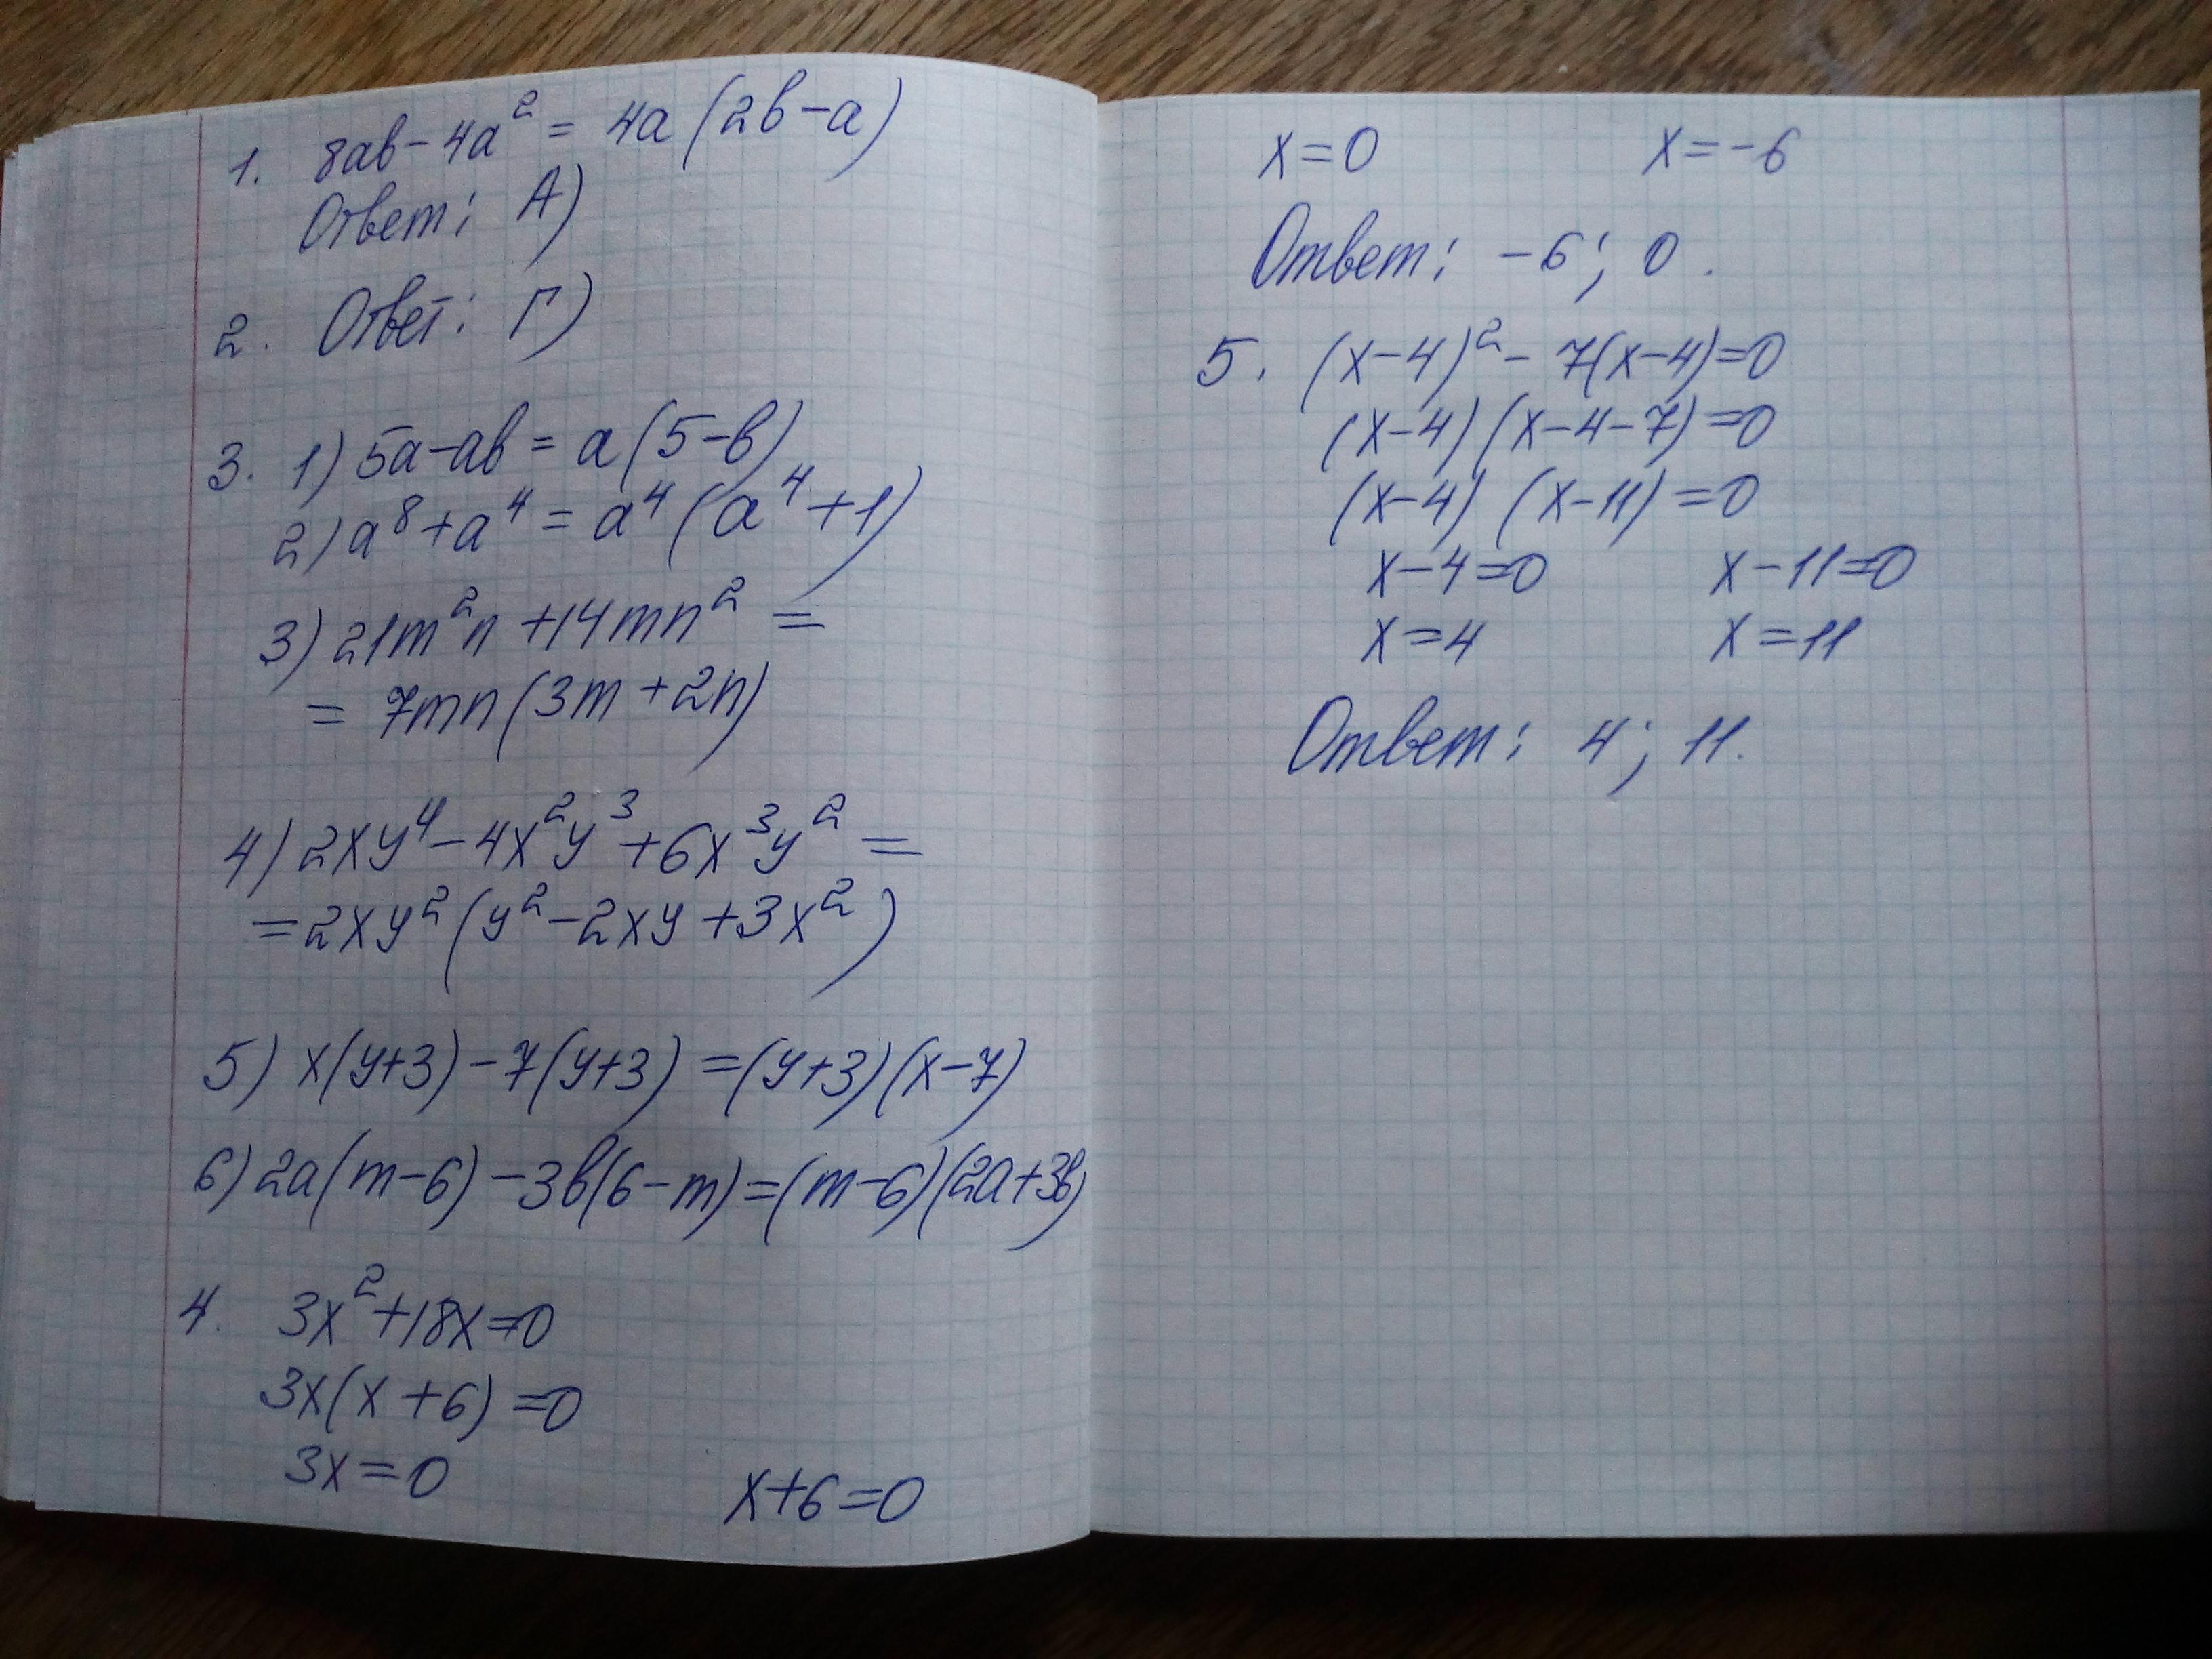 1. 8ab - 4a² = 4a (2b - a)
Ответ: А)
2. Ответ: Г)
3. 1) 5a - ab = a (5 - b)
2) a⁸ + a⁴ = a⁴ (a⁴ + 1)
3) 21m²n + 14mn² =
= 7mn (3m + 2n)
4) 2xy⁴ - 4x²y³ + 6x³y² =
= 2xy² (y² - 2xy + 3x²)
5) x(y+3) - 7(y+3) = (y+3)(x-7)
6) 2a(m-6) - 3b(6-m) = (m-6)(2a+3b)
4. 3x² + 18x = 0
3x(x + 6) = 0
3x = 0 x + 6 = 0
x = 0 x = -6
Ответ: -6; 0.
5. (x-4)² - 7(x-4) = 0
(x-4)(x-4-7) = 0
(x-4) (x-11) = 0
x-4=0 x-11=0
x=4 x=11
Ответ: 4; 11.